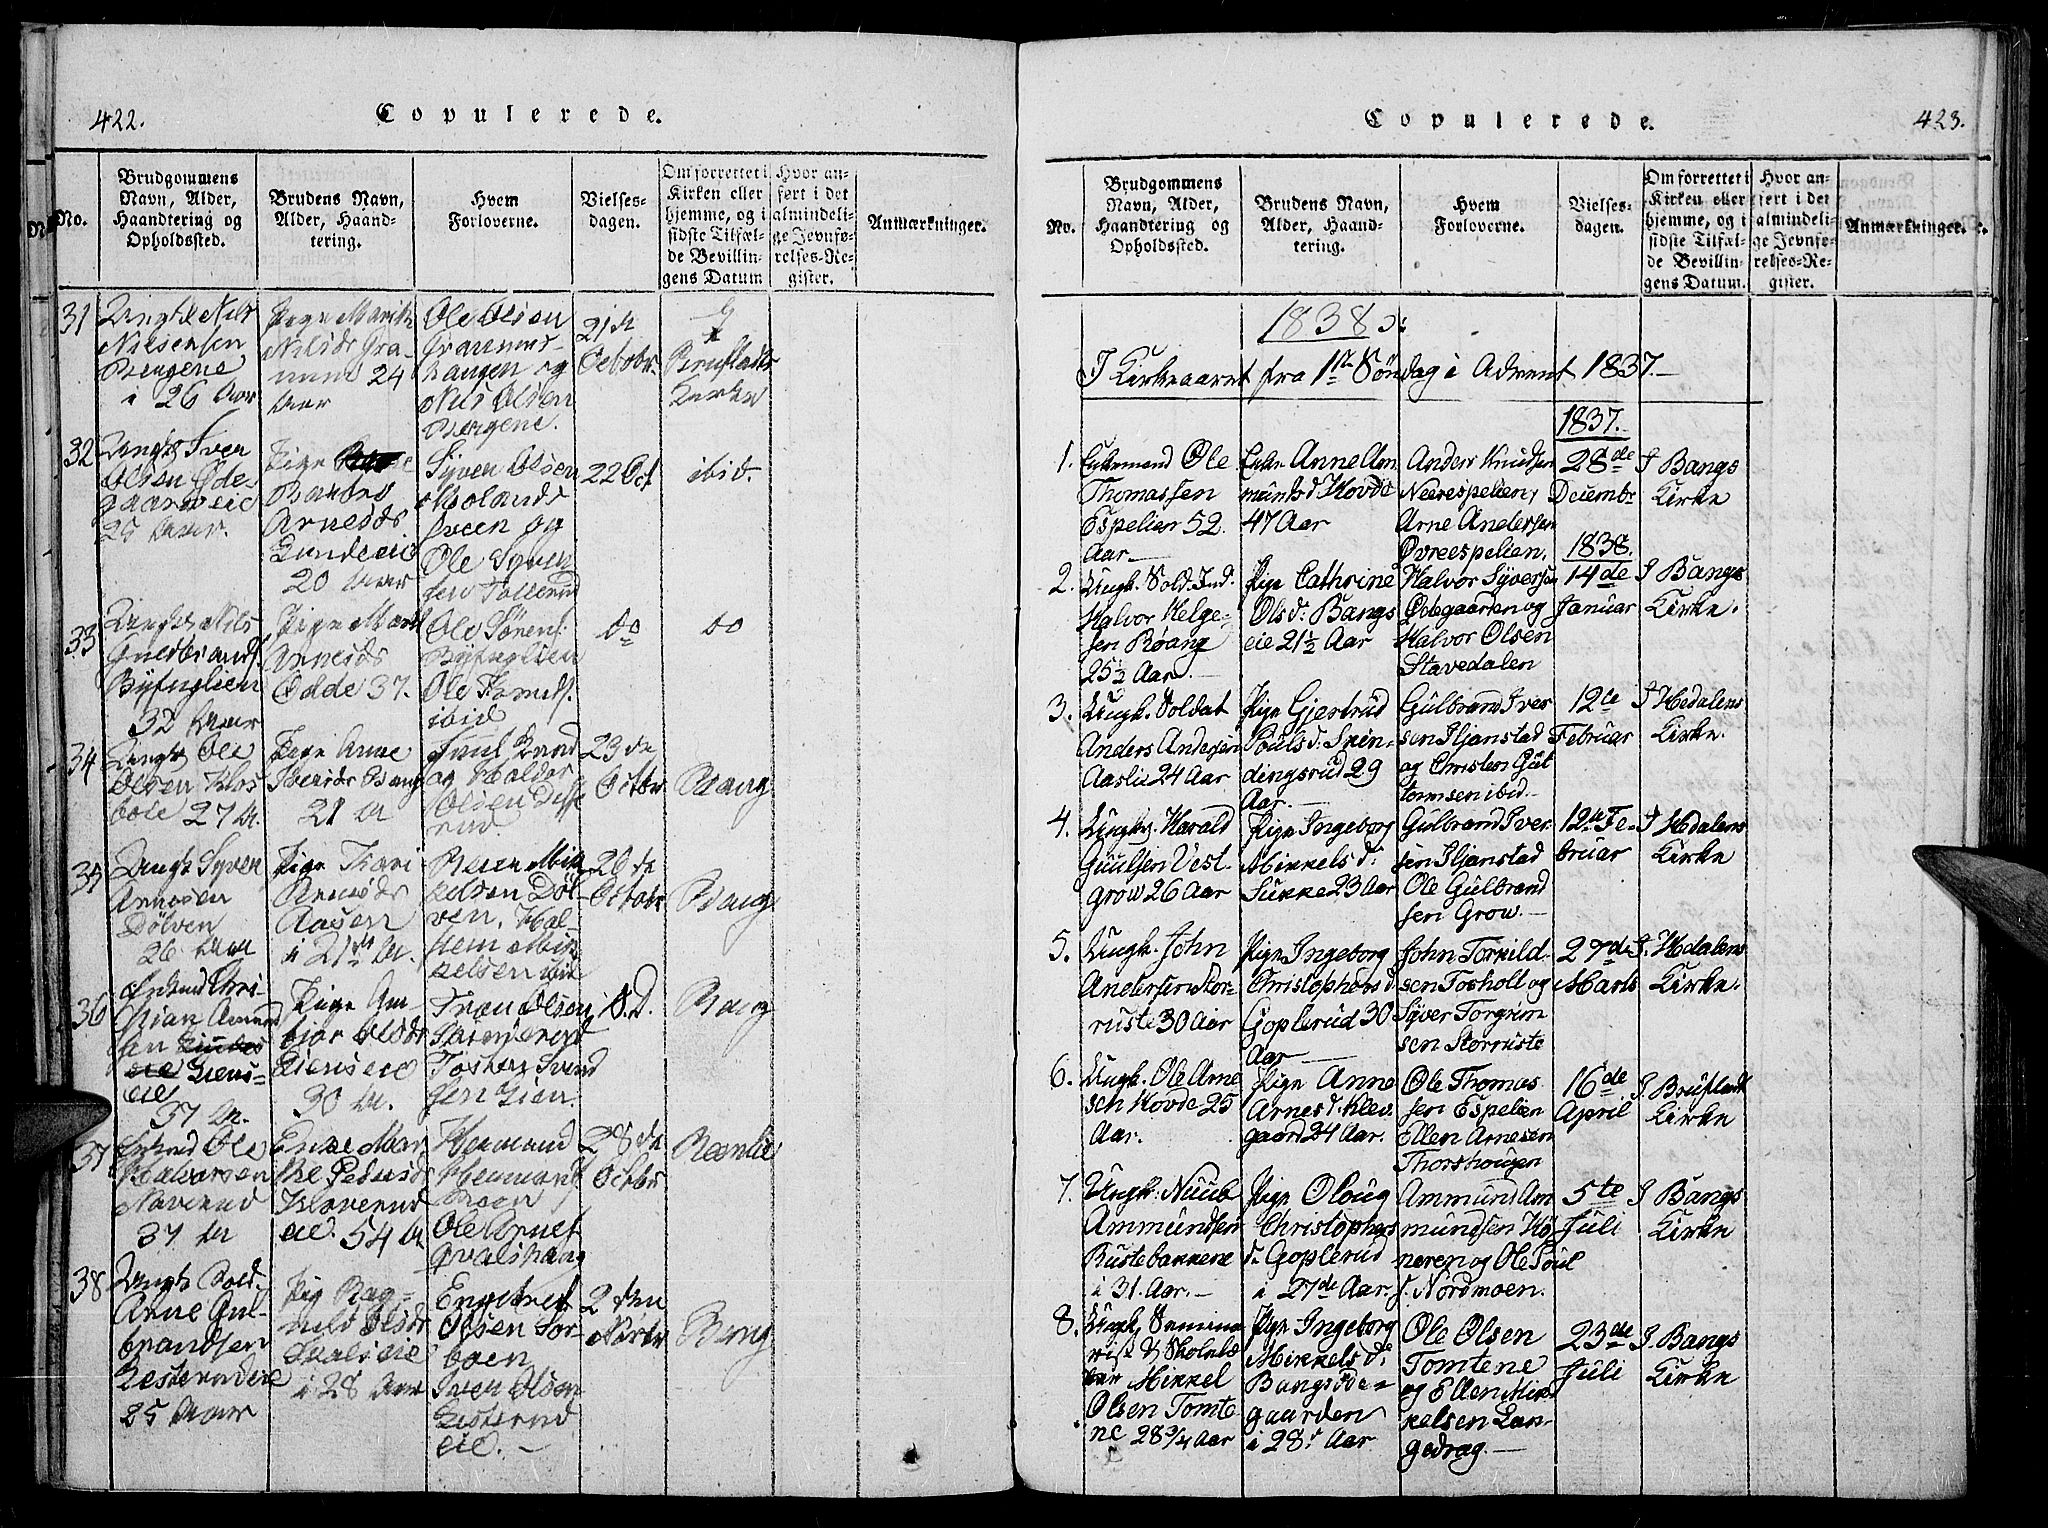 422.
Copulerede.
No.
Brudgommens
Navn, Alder,
Haandtering og
Opholdssted.
Brudens Navn,
Alder, Haand-
tering.
Hvem
Forloverne.
Vielses-
dagen.
Om forrettet i
Kirken eller
hjemme, og i
sidste Tilfæl-
de Bevillin-
gens Datum
Hvor an-
ført i det
almindeli-
ge Jevnfø-
relses-Re-
gister.
Anmærkninger.
31
Ungk. Nils
Nilsensen
Bergene
i 26 Aar
Pige Marith
Nilsdr Gra-
24
Aar
Ole Olsen
hougen og
Nils Olsen
Bergene.
21de
Octobr.
Bruflads
Kirke
32
Ungk. Iver
Olsen Øde-
gaardseie
25 Aar.
Pige
Barbro
Arnesdr
20 Aar
Syven Olsen
og
Ole Syven
sen Tollerud
22 Oct
ibid.
33
Ungk. Nils
Guldbrands.
Byfuglien
32 Aar
Pige Marit
Arnesdr
Odde 37.
Ole Sørens.
Byfuglien
Ole
ibid
do
do
34
Ungk. Ole
Olsen Klos
bøle 27 A.
Pige Anne
Iversdr Bang
21 A
og Haldor
Olsen
23de
Octbr
Bang
35
Ungk. Syven
Arnesen
Dølven
26 Aar
Pige Kari
Arnesdr
Aasen
i 21de A.
Mik
kelsen Døl-
ven, Hal-
stein Mik
kelsen ibid
26de
Octobr
Bang
36
Enkmd Chri-
stian Amund
sen
eie Liens-
eie
37 A.
Pige Am
bjør Olsdr
Lienseie
30 A.
Olsen
Svend
sen Lien.
s.D.
Bang
37
Enkmd Ole
Halvorsen
37 A
Enke Mar
the Pedersd
Klaverud
eie. 54 A
Hermand
Hermans
Ole Arnes
28de
Octbr
Reenlie
38
Ungk. Sold.
Arne Gul-
brandsen
25 Aar
Pig Rag-
nild Olsdr
i 28 Aar
Engebret
Olsen Sør-
boen
Iven Olsen
eie.
2den
Novbr
Bang
Copulerede.
423.
No.
Brudgommens
Navn, Alder,
Haandtering og
Opholdssted.
Brudens Navn,
Alder, Haand-
tering.
Hvem
Forloverne.
Vielses-
dagen.
Om forrettet i
Kirken eller
hjemme, og i
sidste Tilfæl-
de Bevillin-
gens Datum.
Hvor an-
ført i det
almindeli-
ge Jevnfø-
relses-Re-
gister.
Anmærkninger.
1838
I Kirkeaaret fra 1ste Søndag i Advent 1837.
1837.
1.
Enkemand Ole
Thomassen
Espelien 52
Aar
Enke Anne Am
mundsd. Hovde
47 Aar
Anders Knudsen
Neerespelien,
Arne Andersen
Øvreespelien.
28de
Decembr
I Bangs
Kirke
1838.
2.
Ungk. Sold. Ind.
Halvor Helge-
sen Roang
25½ Aar.
Pige Cathrine
Olsd: Bangs
eie 21½ Aar
Halvor Syversen
Ødegaarden og
Halvor Olsen
Stavedalen
14de
Januar
I Bangs
Kirke.
3.
Ungk. Soldat
Anders Andersen
Aaslie 24 Aar
Pige Gjertrud
Poulsd: Spin-
dingsrud 29
Aar.
Gulbrand Iver
sen Iljanstad
og Christen Gut
tormsen ibid.
12te
Februar
I Hedalens
Kirke.
4.
Ungk. Harald
Guulsen Vest-
grow 26 Aar
Pige Ingeborg
Mikkelsd:
Sukke 23 Aar
Gulbrand Iver-
sen Iljanstad
Ole Gulbrand
sen Grow.
12te Fe-
bruar
I Hedalens
Kirke
5.
Ungk. John
Andersen Stor-
ruste 30 Aar
Pige Ingeborg
Christophersd
Goplerud 30
Aar
John Torkild-
sen Fosholt og
Syver Torgrim
sen Storruste
27de
Marts
I Hedalens
Kirke.
6.
Ungk. Ole Arne
sen Hovde 25
Aar.
Pige Anne
Arnesd. Klev
gaard 24 Aar.
Ole Thomas
sen Espelien
Ellen Arnesen
Thorshougen
16de
April
I Bruflads
Kirke
7.
Ungk. Nuub
Ammundsen
Rustebakkene
i 31. Aar.
Pige Oloug
Christophers
d. Goplerud
i 27de Aar.
Ammund Am
mundsen Kø
neren og Ole Poul
s. Nordmoen.
5te
Juli
I Bangs
Kirke
8.
Ungk. Semina
rist & Skolelæ
rer Mikkel
Olsen Tomte
ne 28¾ Aar
Pige Ingeborg
Mikkelsd:
Bangsøde-
gaarden
i 28. Aar
Ole Olsen
Tomtene
og Ellen Mik
kelsen Lan-
gedrag.
23de
Juli
I. Bangs
Kirke